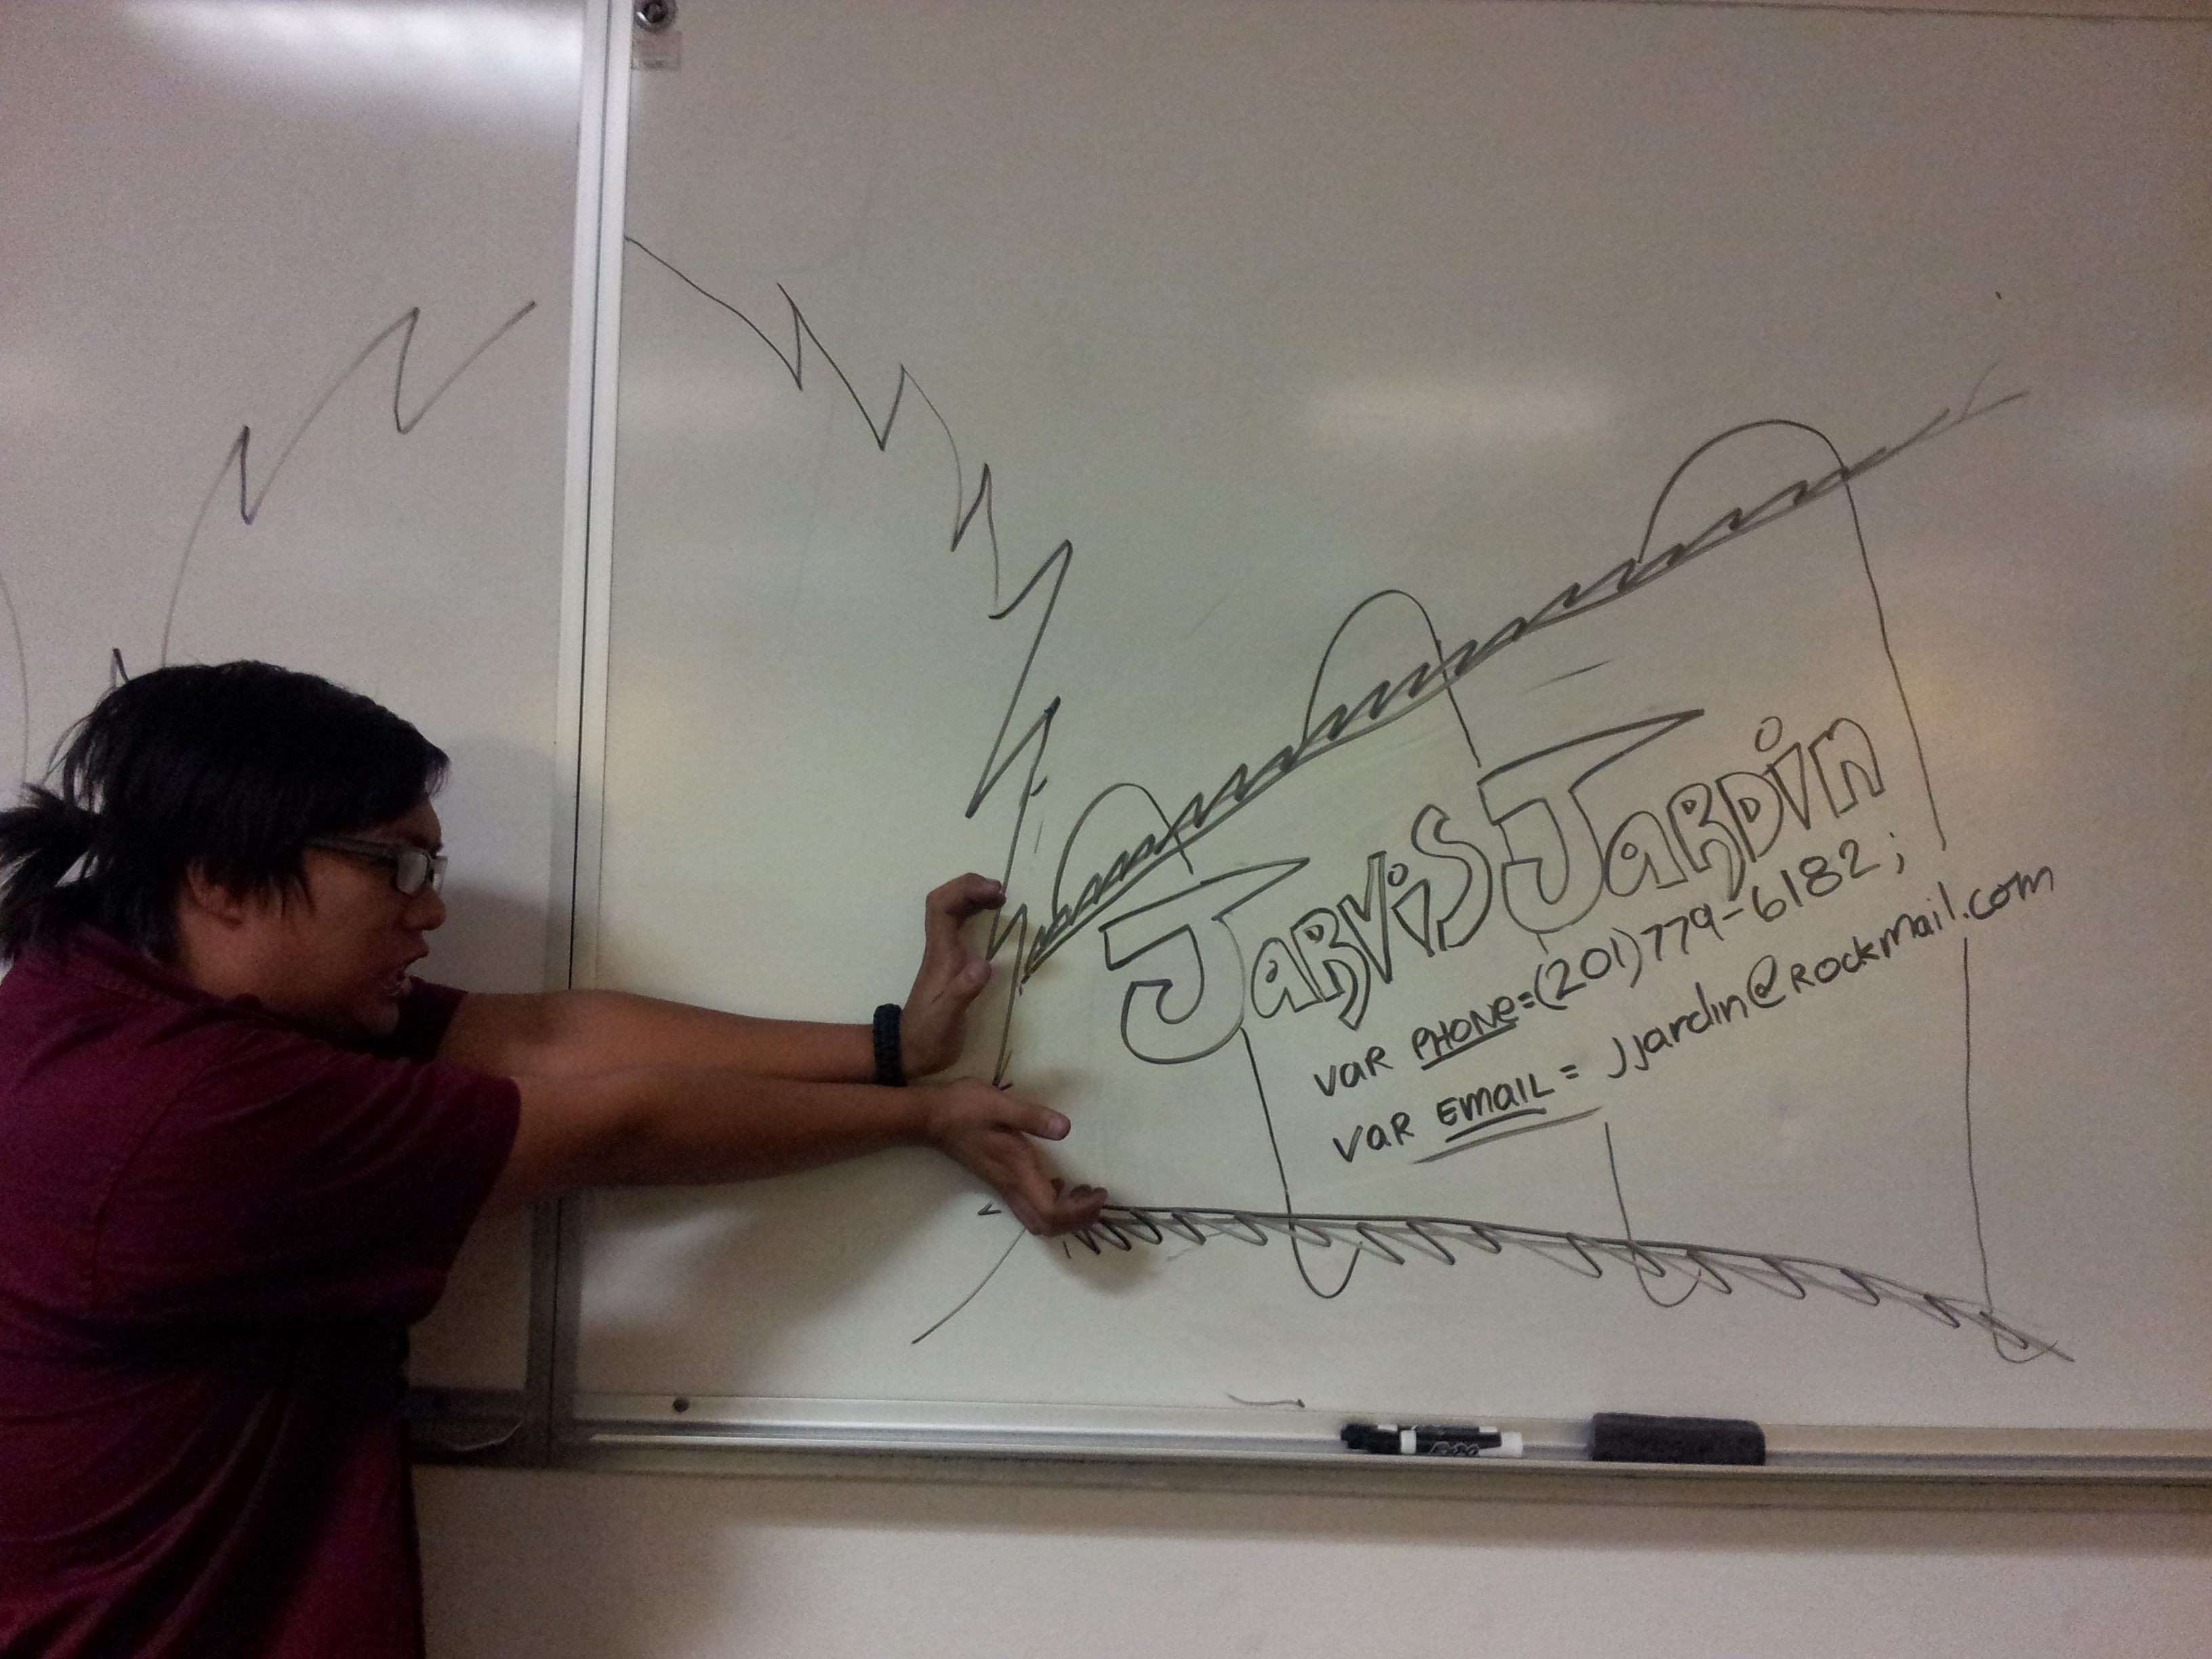 JARViS JARDin
VaR PHONE=(201)779-6182;
VaR Email= jjardin@Rockmail.com
EXPO